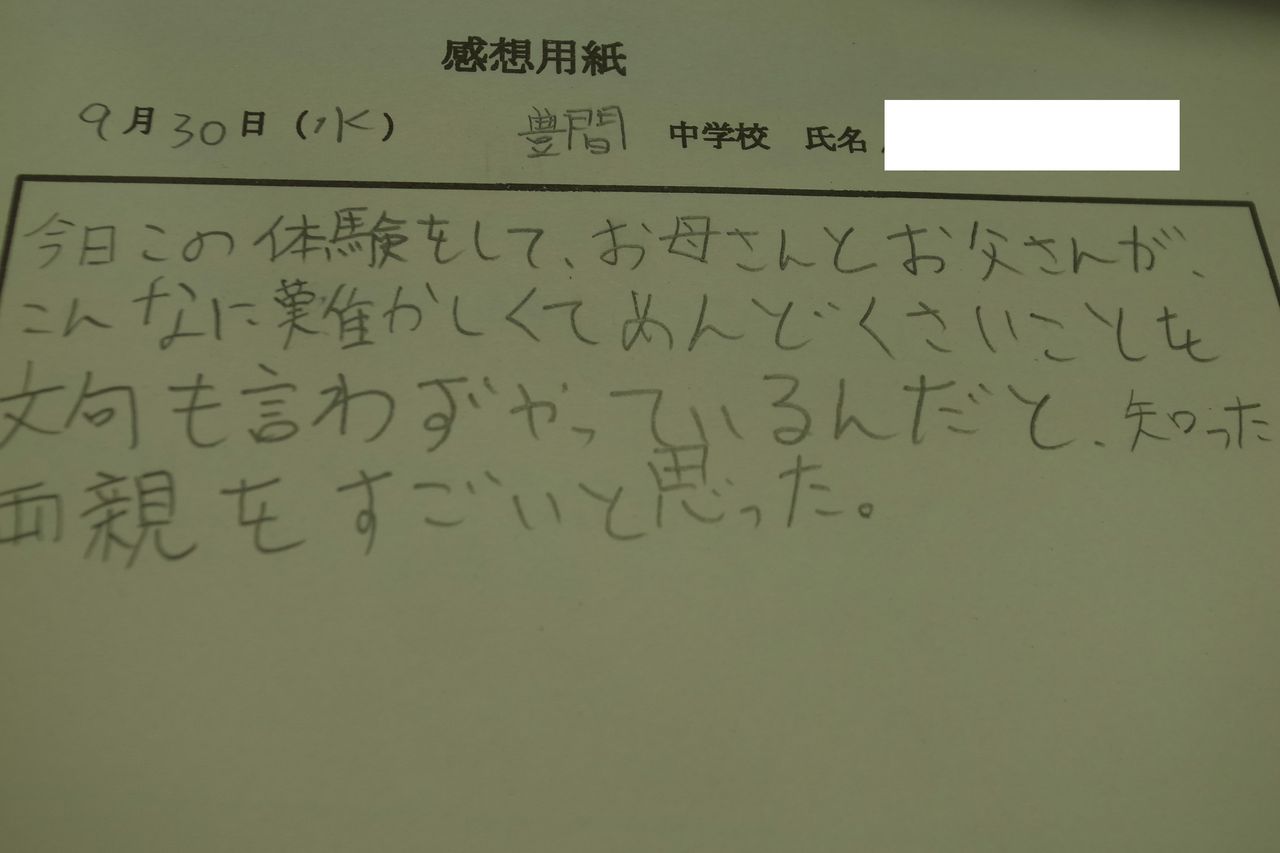 感想用紙
9月30日(水) 豊間 中学校 氏名
今日この体験をして、お母さんとお父さんが、
こんなに難かしくてめんどくさいことを
文句も言わずやっているんだと、知った
両親をすごいと思った。